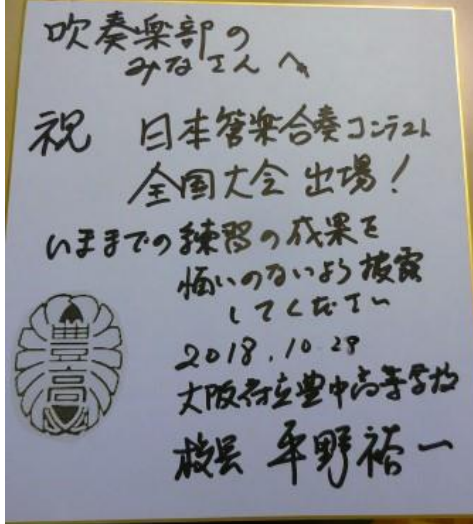 吹奏楽部の
みなさんへ
祝 日本管楽合奏コンテスト
全国大会出場!
いままでの練習の成果を
悔いのないよう披露
してください
2018.10.29
大阪府立豊中高等学校
校長 平野裕一
豊高